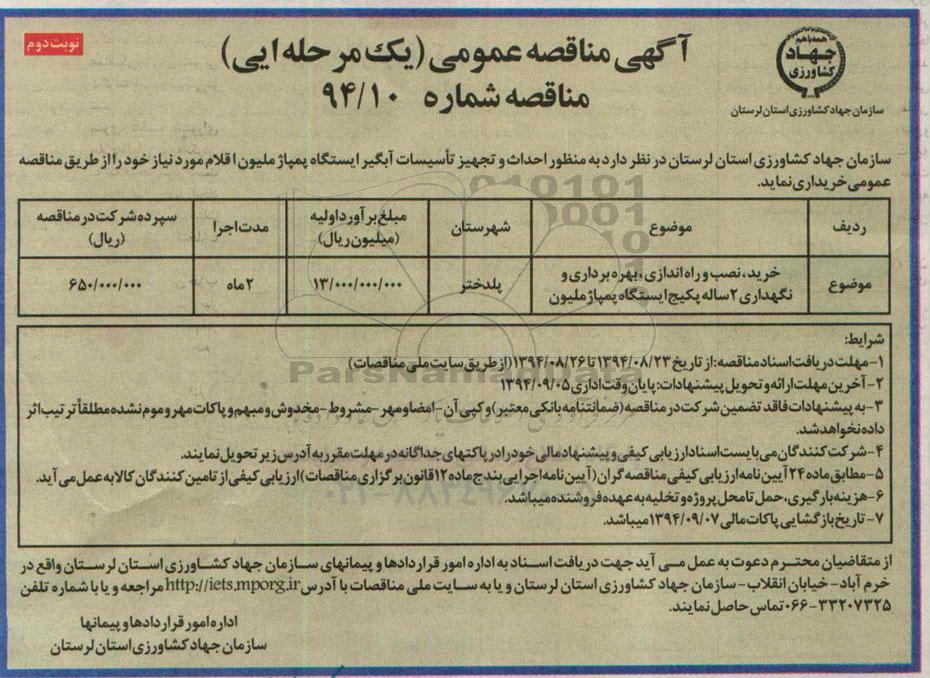 نوبت دوم
همه با هم
جهاد
کشاورزی
سازمان جهاد کشاورزی استان لرستان
آگهی مناقصه عمومی (یک مرحله ایی)
مناقصه شماره ۹۴/۱۰
سازمان جهاد کشاورزی استان لرستان در نظر دارد به منظور احداث و تجهیز تأسیسات آبگیر ایستگاه پمپاژ ملیون اقلام مورد نیاز خود را از طریق مناقصه
عمومی خریداری نماید.
ردیف	موضوع	شهرستان	مبلغ برآورد اولیه (میلیون ریال)	مدت اجرا	سپرده شرکت در مناقصه (ریال)
موضوع	خرید، نصب و راه اندازی، بهره برداری و نگهداری ۲ ساله پکیج ایستگاه پمپاژ ملیون	پلدختر	۱۳/۰۰۰/۰۰۰/۰۰۰	۲ ماه	۶۵۰/۰۰۰/۰۰۰
شرایط:
۱- مهلت دریافت اسناد مناقصه: از تاریخ ۱۳۹۴/۰۸/۲۳ تا ۱۳۹۴/۰۸/۲۶ (از طریق سایت ملی مناقصات)
۲- آخرین مهلت ارائه و تحویل پیشنهادات: پایان وقت اداری ۱۳۹۴/۰۹/۰۵
۳- به پیشنهادات فاقد تضمین شرکت در مناقصه (ضمانتنامه بانکی معتبر) و کپی آن - امضا و مهر - مشروط - مخدوش و مبهم و پاکات مهر و موم نشده مطلقاً ترتیب اثر
داده نخواهد شد.
۴- شرکت کنندگان می بایست اسناد ارزیابی کیفی و پیشنهاد مالی خود را در پاکتهای جداگانه در مهلت مقرر به آدرس زیر تحویل نمایند.
۵- مطابق ماده ۲۴ آیین نامه ارزیابی کیفی مناقصه گران (آیین نامه اجرایی بند ج ماده ۱۲ قانون برگزاری مناقصات) ارزیابی کیفی از تامین کنندگان کالا به عمل می آید.
۶- هزینه بارگیری، حمل تا محل پروژه و تخلیه به عهده فروشنده میباشد.
۷- تاریخ بازگشایی پاکات مالی ۱۳۹۴/۰۹/۰۷ میباشد.
از متقاضیان محترم دعوت به عمل می آید جهت دریافت اسناد به اداره امور قراردادها و پیمانهای سازمان جهاد کشاورزی استان لرستان واقع در
خرم آباد - خیابان انقلاب - سازمان جهاد کشاورزی استان لرستان و یا به سایت ملی مناقصات با آدرس http://iets.mporg.ir مراجعه و یا با شماره تلفن
۰۶۶-۳۳۲۰۷۳۲۵ تماس حاصل نمایند.
اداره امور قراردادها و پیمانها
سازمان جهاد کشاورزی استان لرستان
ParsNamadData